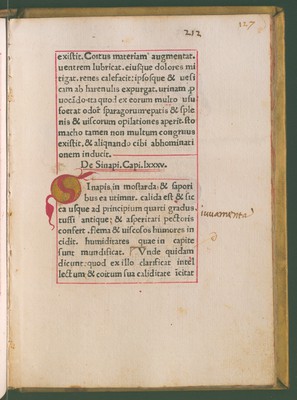 127
212
existit. Costus materiam augmentat.
uentrem lubricat. eiusque dolores mi
tigat. renes calefacit: ipsosque & uesi
cam ab harenulis expurgat. urinam
uocādo. ita quod ex eorum multo usu
foetat odor sparagorum epatis & sple
nis & uiscorum opilationes aperit. sto
macho tamen non multum congruus
existit. & aliquando cibi abhominati
onem inducit.
De Sinapi. Capi. lxxxv.
Sinapis, in mostarda: & sapori
bus ea utimur. calida est & sic
ca usque ad principium quarti gradus.
tussi antique: & asperitati pectoris
confert. flema & uiscosos humores in
cidit. humiditates quae in capite
sunt mundificat. Vnde quidam
dicunt: quod ex illo clarificat intel
lectum & coitum sua caliditate icitat
iuuamenta